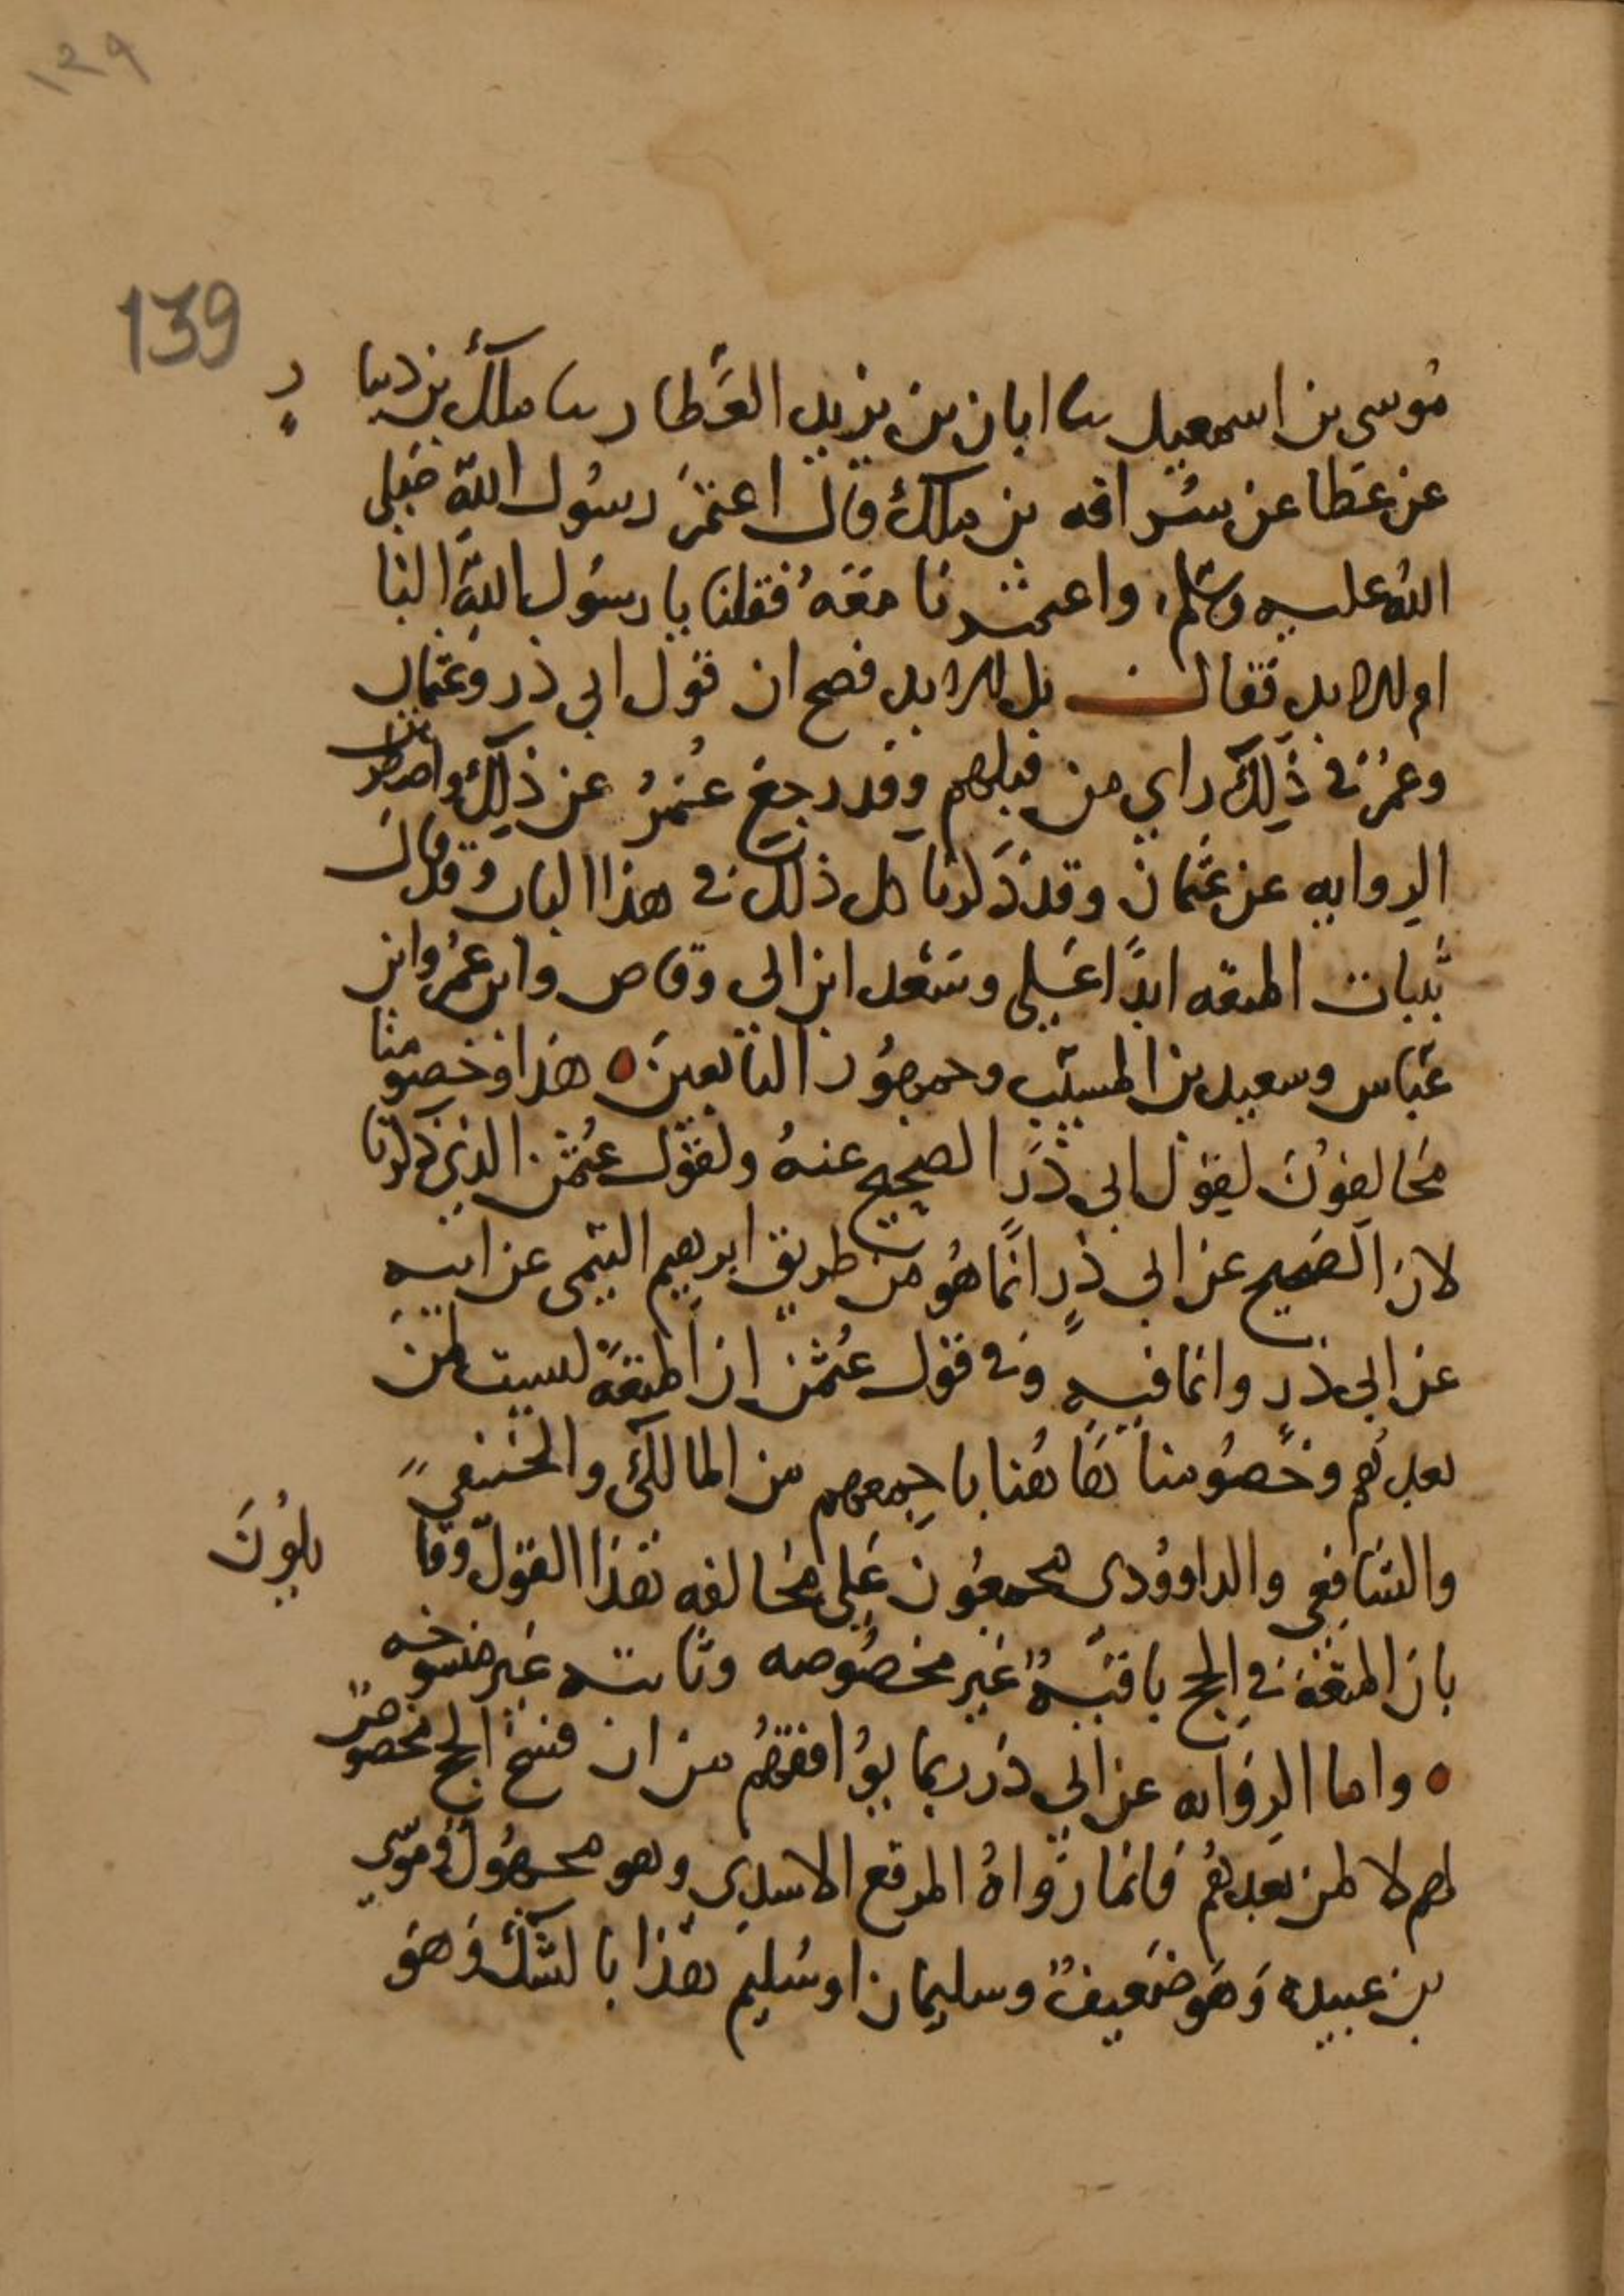 ١٣٩
139
موسى بن اسمعيل نا ابان بن يزيد العطار نا ملك بن دينا ر
عن عطا عن سراقه بن ملك قال اعتمر رسول الله صلى
الله عليه وسلم، واعتمرنا معه فقلنا يا رسول الله النا
ام للابد فقال بل للابد فصح ان قول ابي ذر وعثمان
وعمر في ذلك راي من قبلهم وقد رجع عمر عن ذلك واضطربت
الروايه عن عثمان وقد ذكرنا كل ذلك في هذا الباب وقد قال
بثبات المتعه ابدًا علي وسعد ابن ابي وقاص وابن عمر وابن
عباس وسعيد بن المسيب وجمهور التابعين ٥ هذا وخصومنا
مخالفون لقول ابي ذر الصحيح عنه ولقول عثمن الذي ذكرنا
لان الصحيح عن ابي ذر انما هو من طريق ابرهيم التيمي عن ابيه
عن ابي ذر وانما فيه وفي قول عثمن ان المتعة ليست لمن
بعدهم وخصومنا هاهنا باجمعهم من المالكي والحنفي
والشافعي والداوودي مجمعون على مخالفه هذا القول وقا يلون
بان المتعة في الحج باقيةٌ غير مخصوصه وثابته غير منسوخه
٥ واما الروايه عن ابي ذر بما يوافقهم من ان فسخ الحج مخصوصٌ
لهم لا لمن بعدهم فانما رواهُ المرقع الاسدي وهو مجهول وموسى
بن عبيده وهو ضعيفٌ وسليمان او سليم هذا بالشك وهو